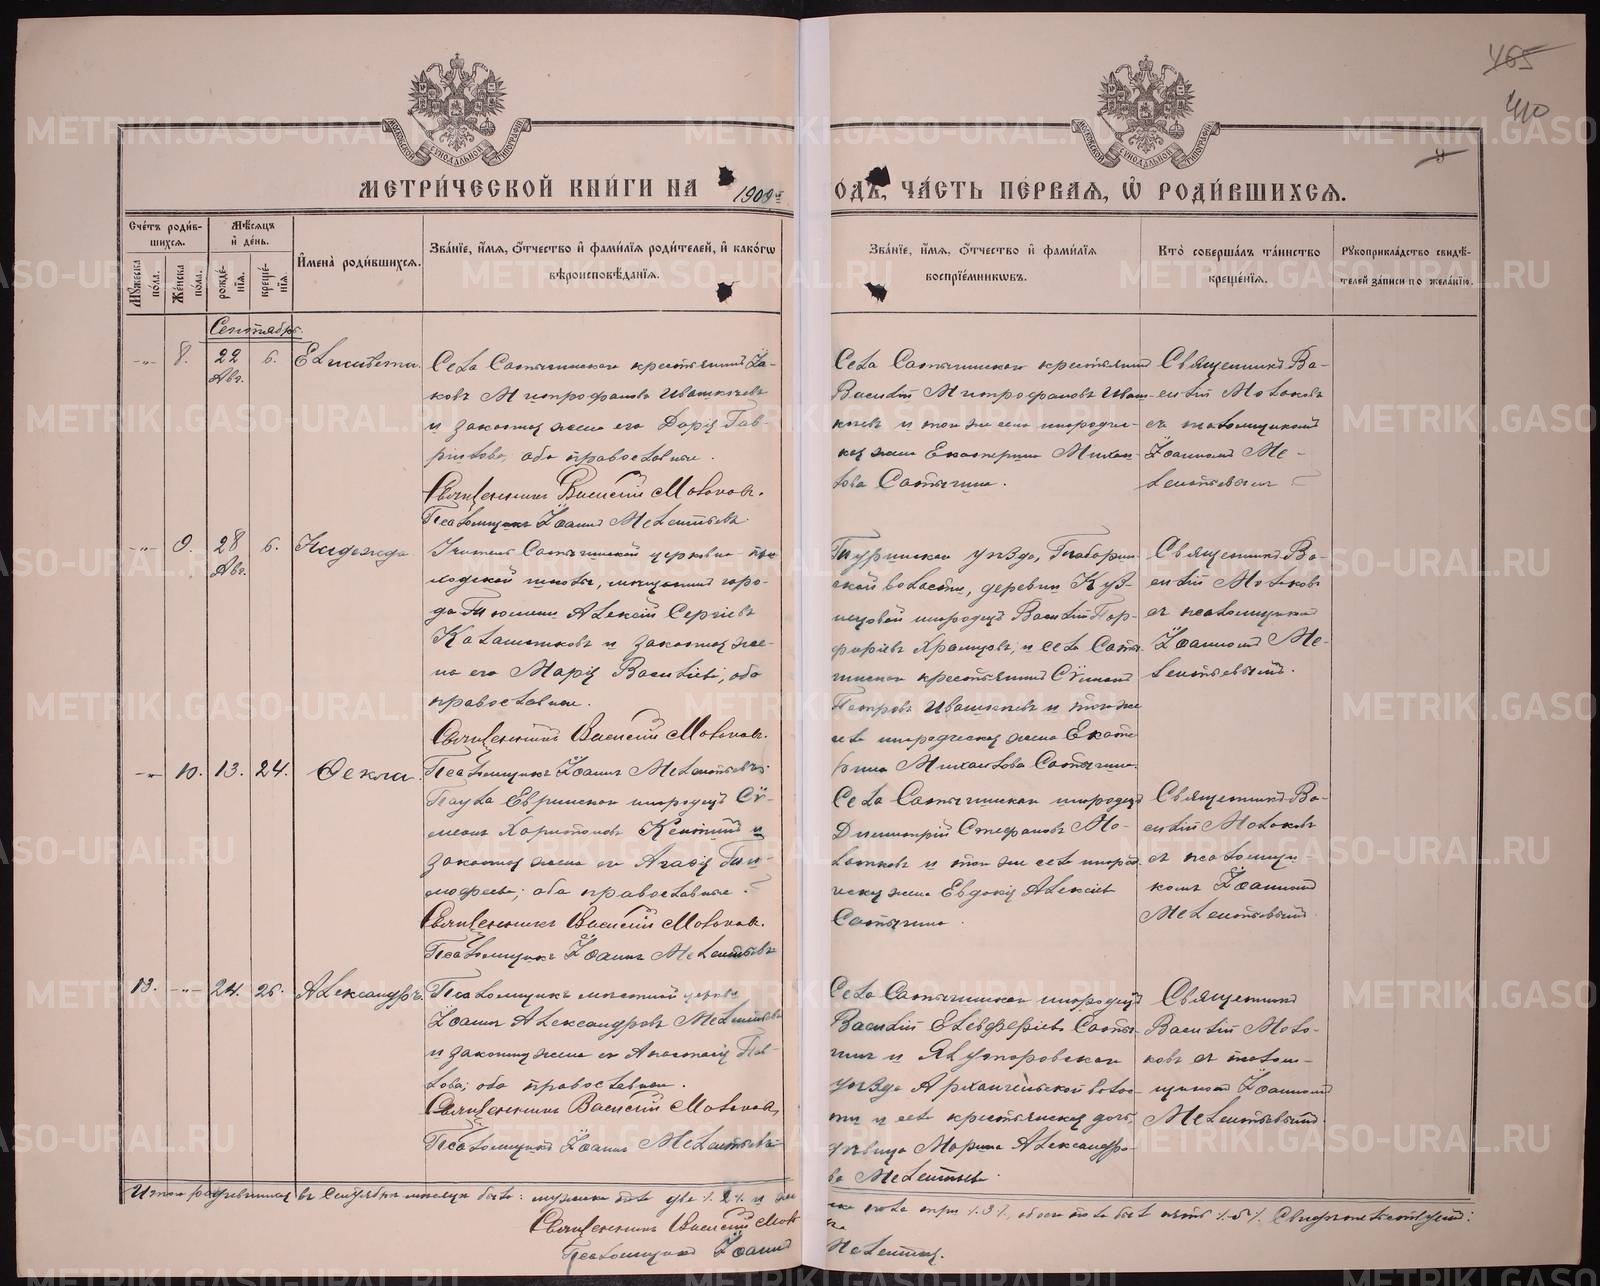 465
410
МОСКОВСКОЙ СѴНОДАЛЬНОЙ ТИПОГРАФІИ
МОСКОВСКОЙ СѴНОДАЛЬНОЙ ТИПОГРАФІИ
МЕТРИ́ЧЕСКОЙ КНИ́ГИ НА 1909 й ОДЪ, ЧА́СТЬ ПЕ́РВАЯ, Ѿ РОДИ́ВШИХСЯ.
Сче́тъ роди́вшихся.
Мѣ́сяцъ и де́нь.
Мꙋ́жеска по́ла.
Же́нска по́ла.
рожде́нїя.
креще́нїя.
Имена̀ роди́вшихся.
Зва́нїе, и́мя, о́тчество и фами́лїя роди́телей, и како́гѡ вѣроисповѣ́данїя.
Зва́нїе, и́мя, о́тчество и фами́лїя воспрїе́мникѡвъ.
Кто̀ соверша́лъ та́инство креще́нїя.
Рꙋкоприкла́дство свидѣ́телей за́писи по жела́нїю.
Сентябрь.
8. 22 Авг. 6. Елисавета.
Села Сатыгинскаго крестьянинъ Іа-
ковъ Митрофановъ Ивашкеевъ
и законная жена его Дарія Гав-
рилова, оба православные.
Священникъ Василій Молоковъ.
Псаломщикъ Іоаннъ Мелентьевъ.
Села Сатыгинскаго крестьянинъ
Василій Митрофановъ Иваш-
кеевъ и того же села инородче-
ская жена Екатерина Михаи-
лова Сатыгина.
Священникъ Ва-
силій Молоковъ
съ псаломщикомъ
Іоанномъ Ме-
лентьевымъ
9. 28 Авг. 6. Надежда
Учитель Сатыгинской церковно-при-
ходской школы, мещанинъ горо-
да Тюмени Алексій Сергіевъ
Калашниковъ и законная же-
на его Марія Василіева, оба
православные.
Священникъ Василій Молоковъ.
Псаломщикъ Іоаннъ Мелентьевъ.
Туринскаго уѣзда, Табарин-
ской волости, деревни Куз-
нецовой инородецъ Василій Пор-
фиріевъ Храмцовъ, и села Саты-
гинскаго крестьянинъ Сѵмеонъ
Петровъ Ивашкеевъ и того же
села инородческая жена Екате-
рина Михаилова Сатыгина.
Священникъ Ва-
силій Молоковъ
съ псаломщикомъ
Іоанномъ Ме-
лентьевымъ.
10. 13. 24. Ѳекла.
Паула Евринскаго инородецъ Сѵ-
меонъ Харитоновъ и
законная жена его Агафія Ти-
мофеева; оба православные.
Священникъ Василій Молоковъ.
Псаломщикъ Іоаннъ Мелентьевъ
Села Сатыгинскаго инородецъ
Димитрій Стефановъ
и того же села инород-
ческая жена Евдокія Алексіева
Сатыгина.
Священникъ Ва-
силій Молоковъ
съ псаломщи-
комъ Іоанномъ
Мелентьевымъ
13. 24. 26. Александръ.
Псаломщикъ местной церкви
Іоаннъ Александровъ Мелентьевъ
и законная жена его Анастасія Пав-
лова; оба православные.
Священникъ Василій Молоковъ,
Псаломщикъ Іоаннъ Мелентьевъ
Села Сатыгинскаго инородецъ
Василій Елевферіевъ Саты-
гинъ и Ялуторовскаго
уѣзда Архангельской волос-
ти и села крестьянская дочь,
дѣвица Марина Александро-
ва Мелентьева.
Священникъ
Василій Моло-
ковъ съ псалом-
щикомъ Іоанномъ
Мелентьевымъ.
Итого родившихся въ Сентябрѣ месяцѣ было: мужеска пола два /2/ и жен-
ска пола три /3/, обоего пола было пять /5/. Свидѣтельствуемъ:
Священникъ Василій Молоковъ
Псаломщикъ Іоаннъ Мелентьевъ.
METRIKI.GASO-URAL.RU